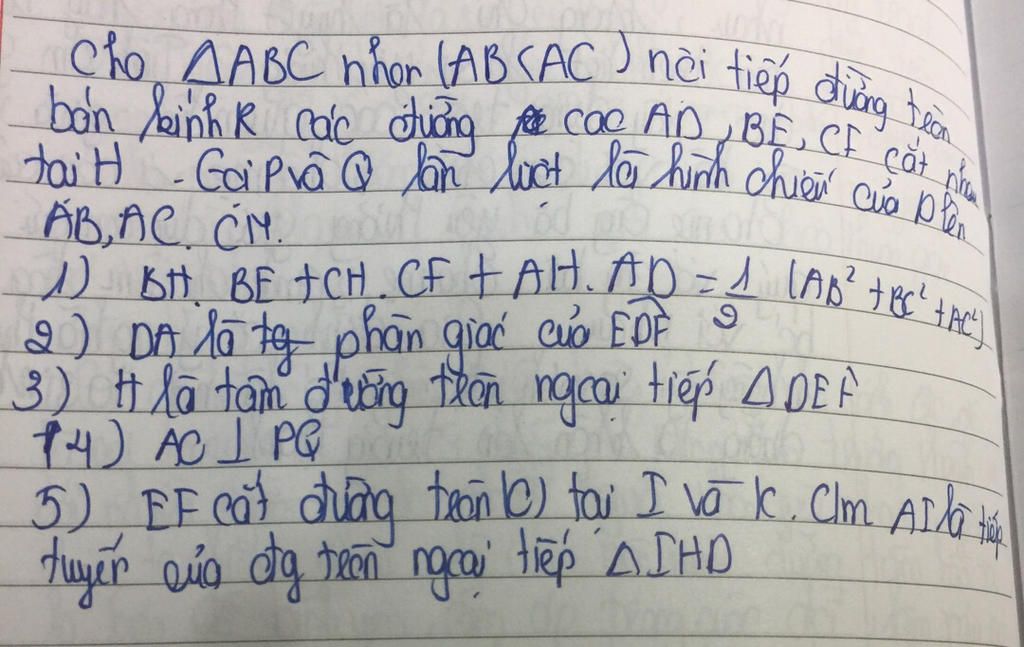 Cho ΔABC nhọn (AB<AC) nội tiếp đường tròn
bán kính R các đường cao AD, BE, CF cắt nhau
tại H. Gọi P và Q lần lượt là hình chiếu của D lên
AB, AC. CM.
1) BH. BE + CH. CF + AH. AD = 1/2 (AB² + BC² + AC²)
2) DA là tg phân giác của EDF
3) H là tâm đường tròn ngoại tiếp Δ DEF
4) AC ⊥ PQ
5) EF cắt đường tròn (O) tại I và K. Cm AI là tiếp
tuyến của đg tròn ngoại tiếp Δ IHD